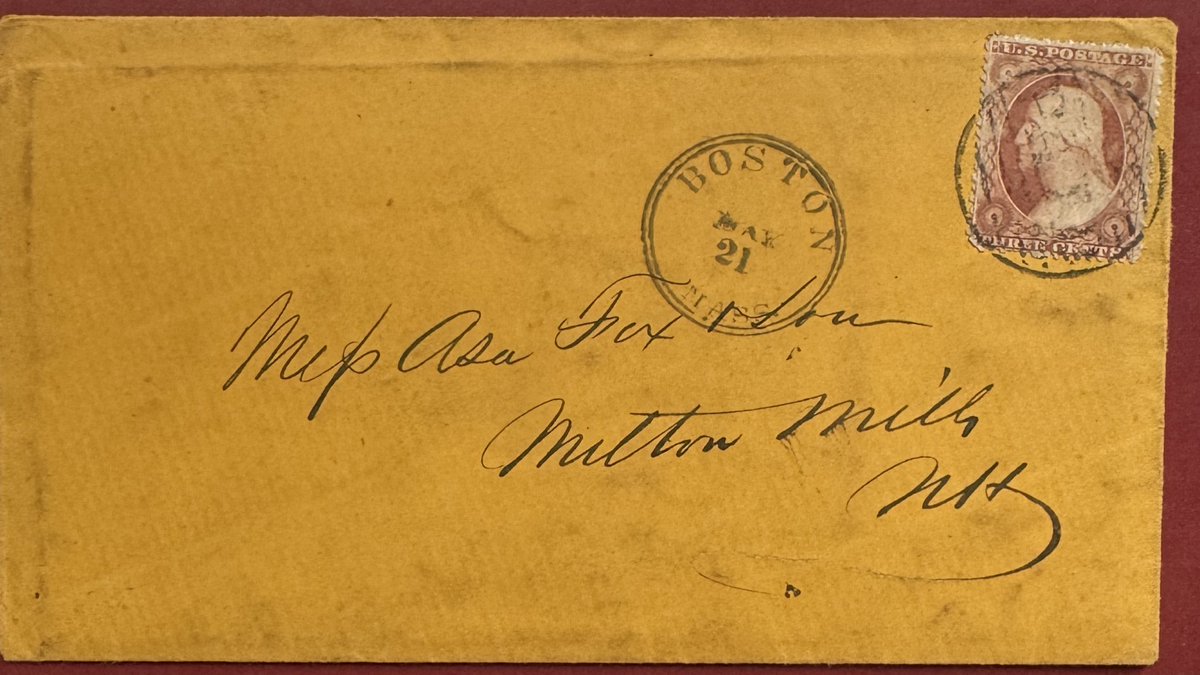 U.S. POSTAGE
THREE CENTS
BOSTON
MAY
21
MASS
Meſs Asa Fox & Son
Milton Mills
NH